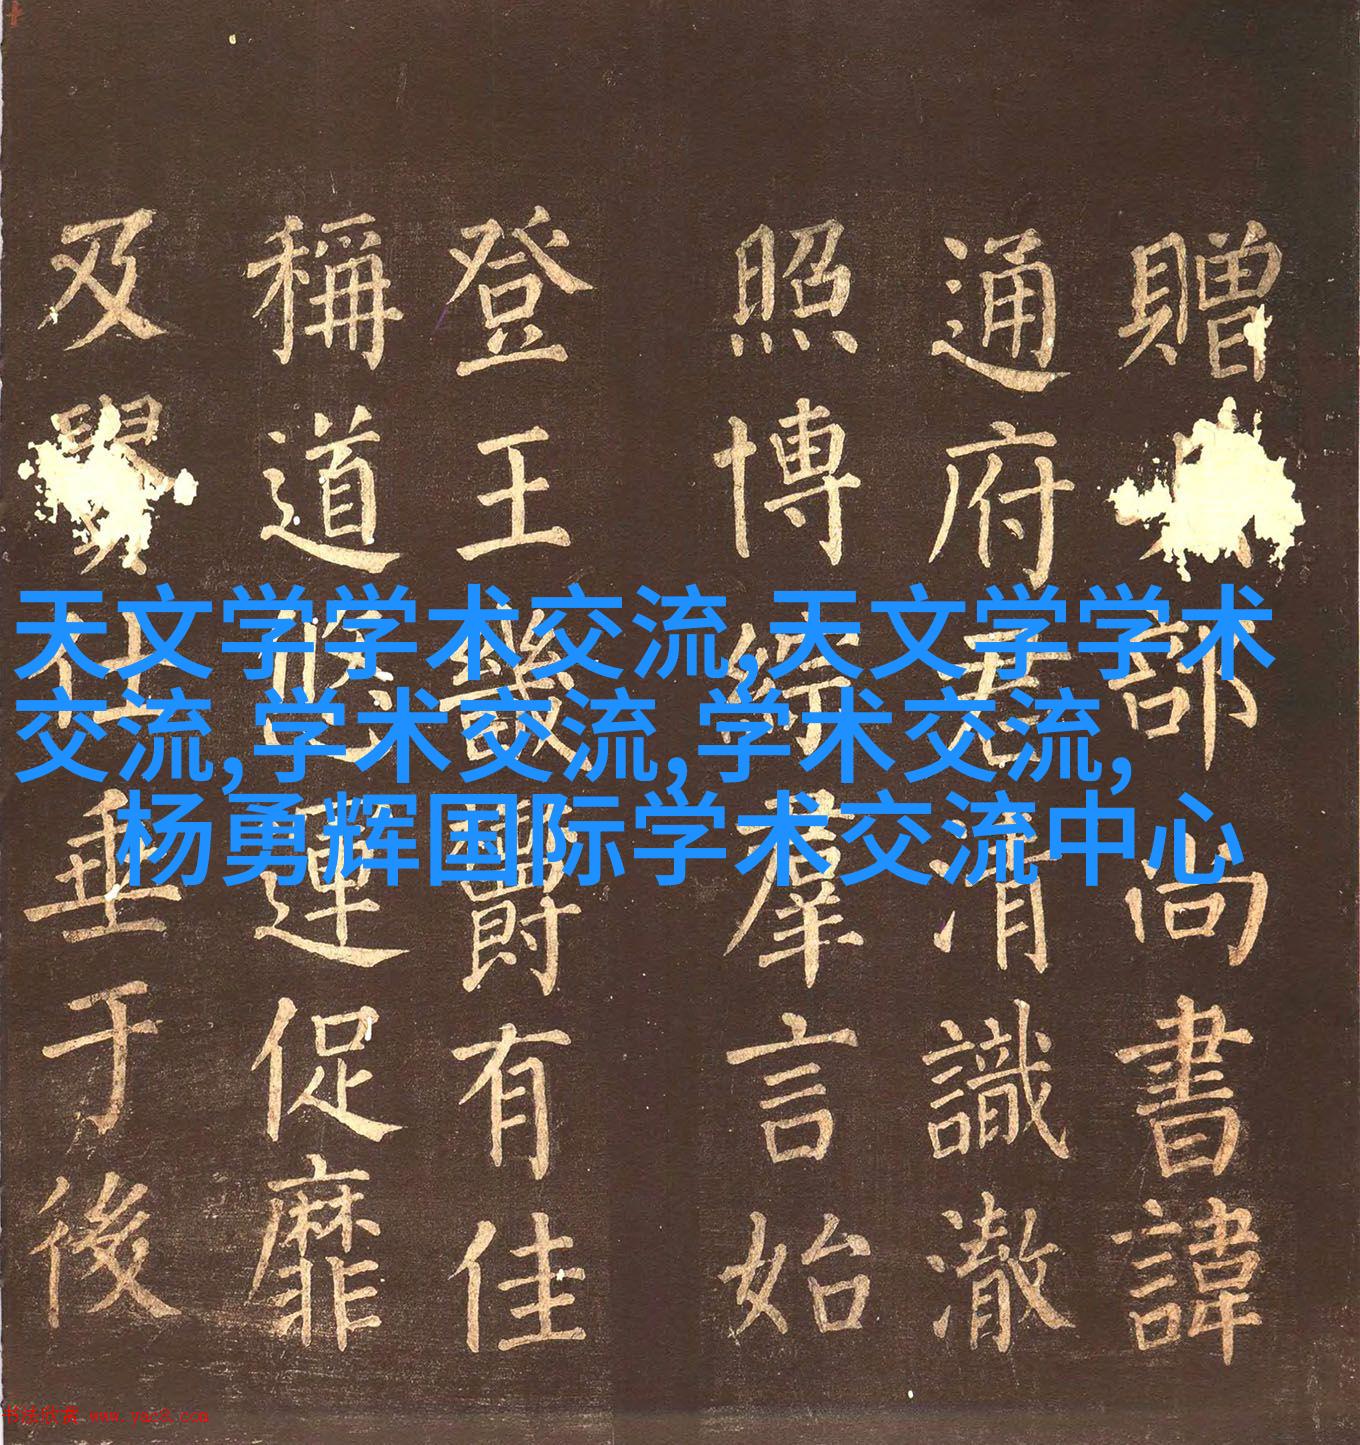 贈部尚書諱
通府君清識澈
照博綜羣言始
登王畿爵有佳
稱道悠運促靡
及仕垂于後
天文学学术交流,天文学学术
交流,学术交流,学术交流,
杨勇辉国际学术交流中心
书法欣赏 www.yac8.com